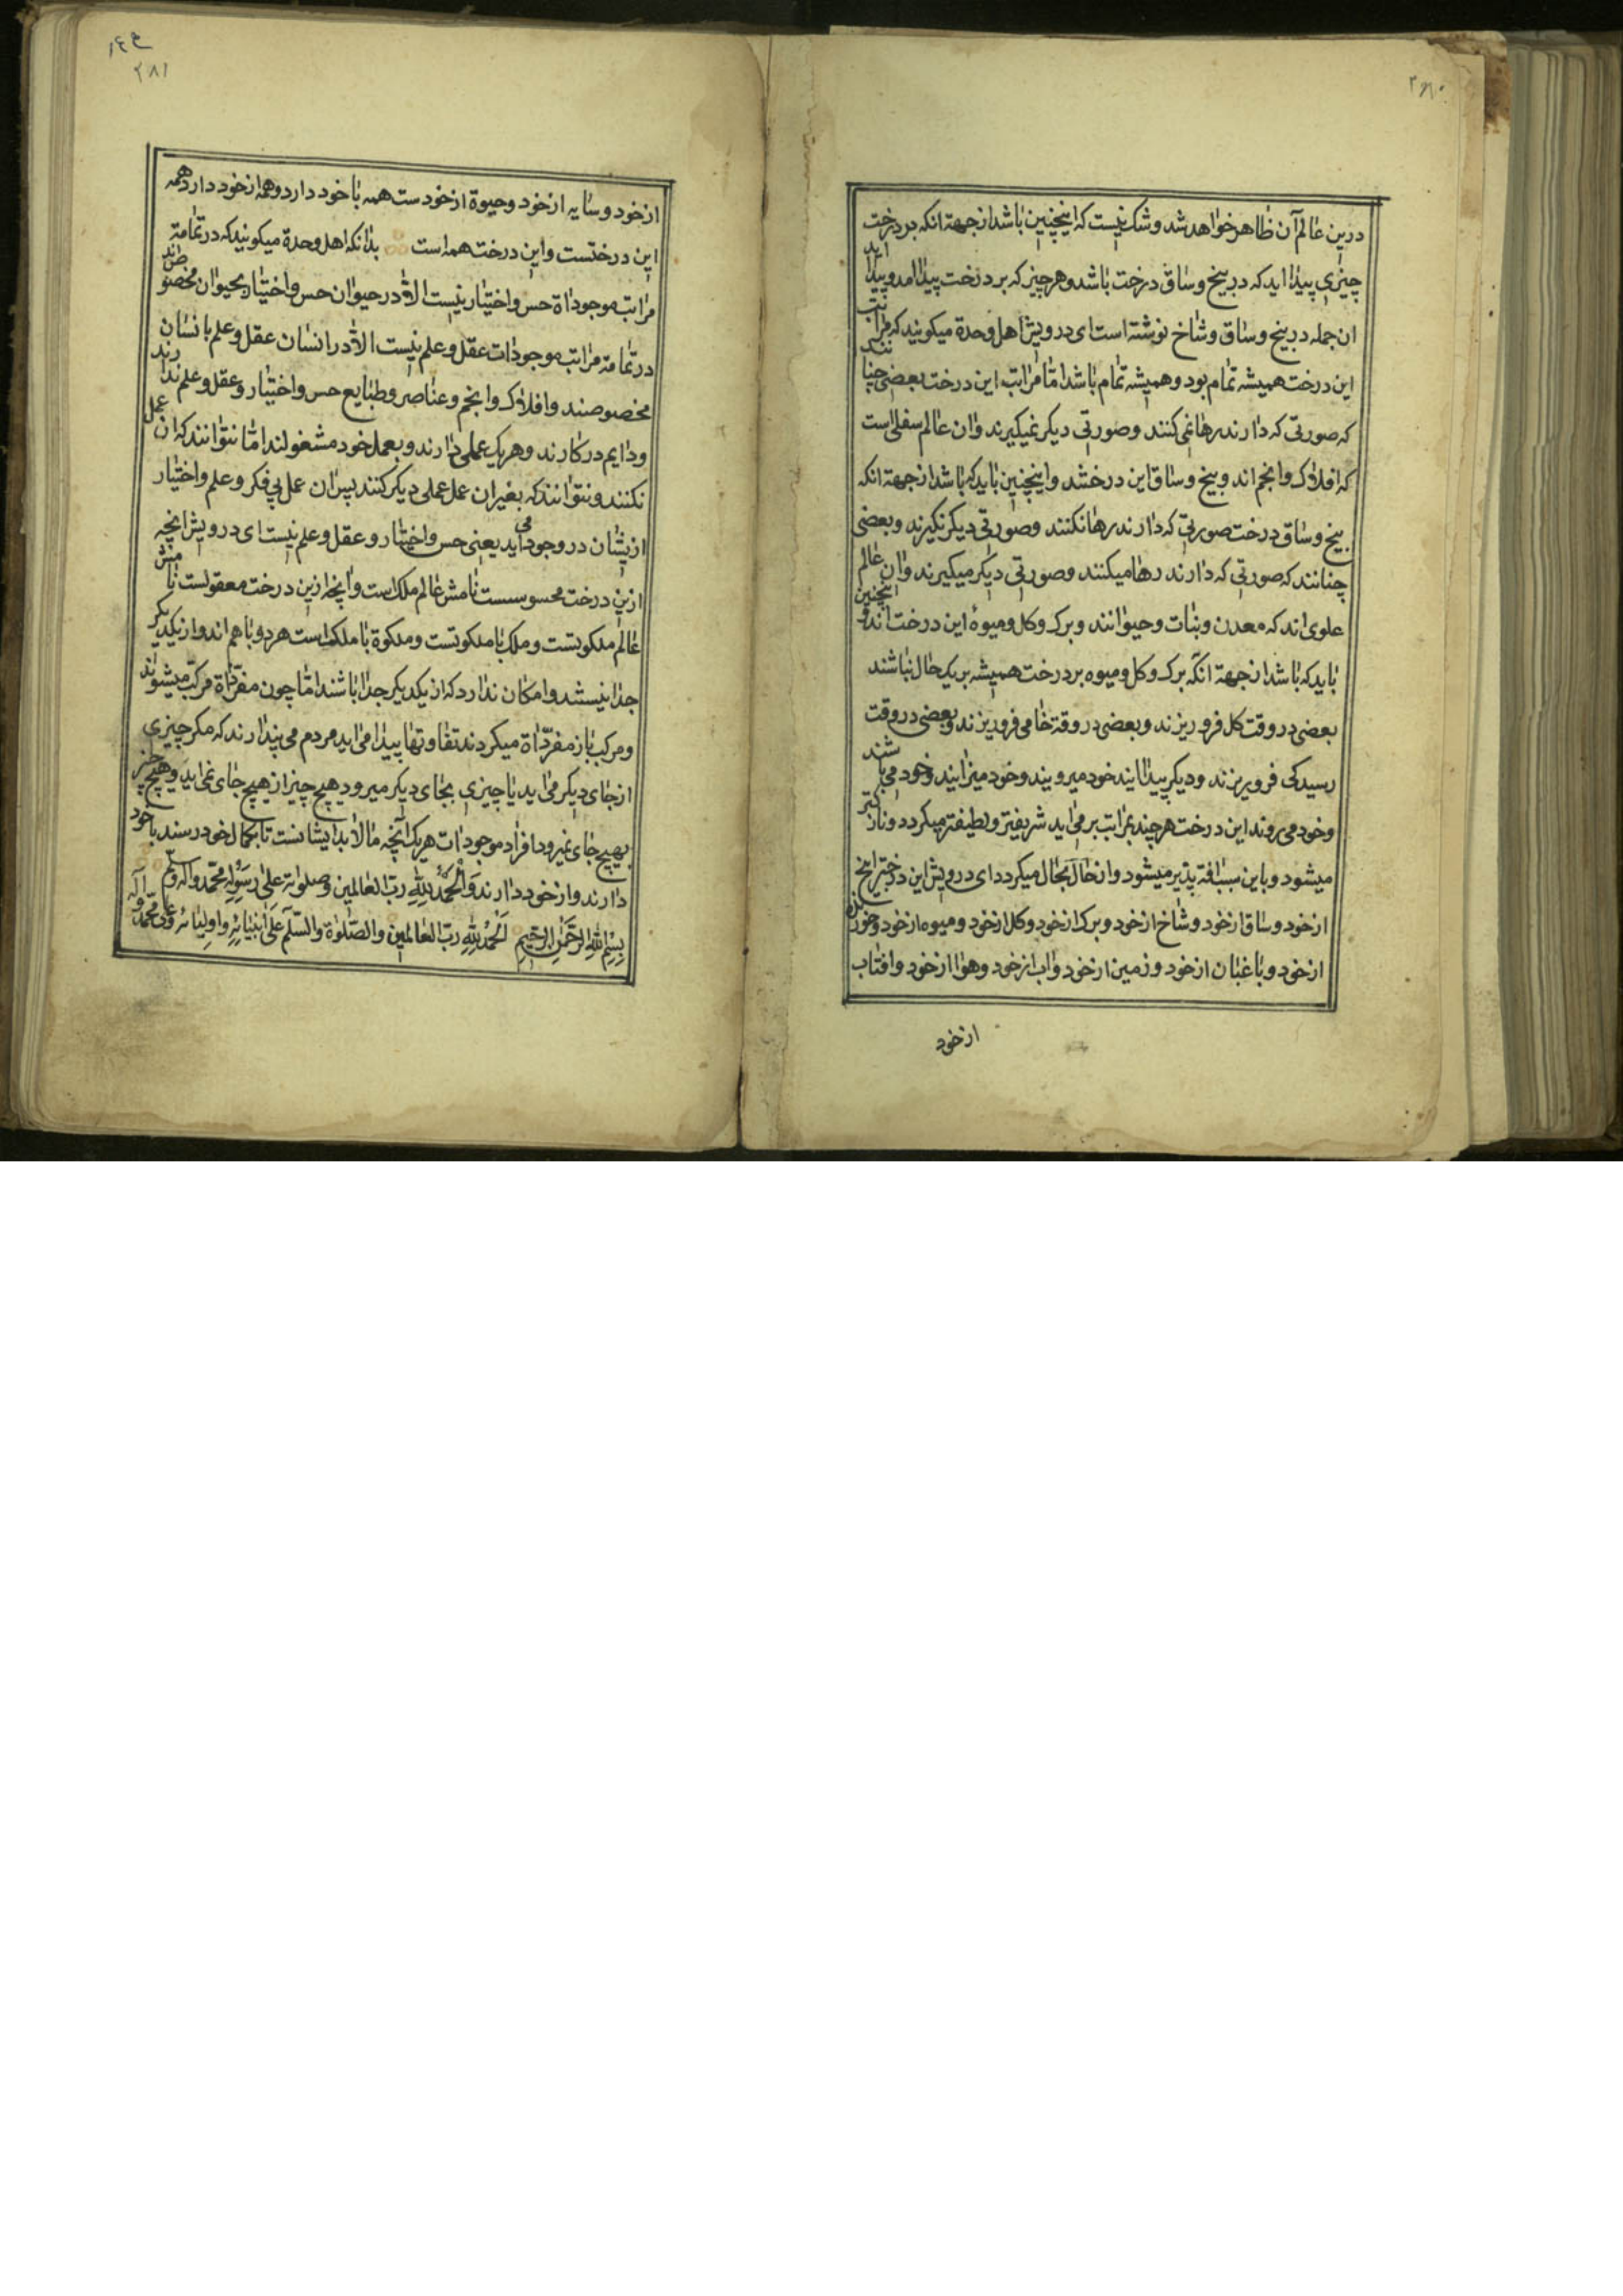 ۲۸۰
درین عالم آن ظاهر خواهد شد و شک نیست که اینچنین باشد از جهة انکه بر درخت
چیزی پیدا اید که در بیخ و ساق درخت باشد و هر چیز که بر درخت پیدا امد و پیدا اید
ان جمله در بیخ و ساق و شاخ نوشته است ای درویش اهل وحدة میکویند که مراتب
این درخت همیشه تمام بود و همیشه تمام باشد اما مراتب این درخت بعضی چنانند
که صورتی که دارند رها نمی کنند و صورتی دیکر نمیکیرند و ان عالم سفلی است
که افلاک و انجم اند و بیخ و ساق این درختند و اینچنین باید که باشد از جهة انکه
بیخ و ساق درخت صورتی که دارند رها نکنند و صورتی دیکر نکیرند و بعضی
چنانند که صورتی که دارند رها میکنند و صورتی دیکر میکیرند و ان عالم
علوی اند که معدن و نبات و حیوانند و برک و کل و میوهٔ این درخت اند و اینچنین
باید که باشد از جهة انکه برک و کل و میوه بر درخت همیشه بر یک حال نباشند
بعضی در وقت کل فرو ریزند و بعضی در وقت خامی فرو ریزند و بعضی در وقت
رسیدکی فرو ریزند و دیکر پیدا ایند خود میرویند و خود میزایند و خود می باشند
و خود می روند این درخت هر چند بمراتب بر می اید شریفتر و لطیفتر میکردد و نازکتر
میشود و باین سبب افة پذیر میشود و از حال بحال میکردد ای درویش این درخت بیخ
از خود و ساق از خود و شاخ از خود و برک از خود و کل از خود و میوه از خود و خورنده
از خود و باغبان از خود و زمین از خود و اب از خود و هوا از خود و افتاب
از خود
۲۸۱
از خود و سایه از خود و حیوة از خودست همه با خود دارد و همه از خود دارد همه
این درختست و این درخت همه است بدانکه اهل وحدة میکویند که در تمامة
مراتب موجوداة حس و اختیار نیست الا در حیوان حس و اختیار بحیوان مخصوصند
در تمامة مراتب موجودات عقل و علم نیست الا در انسان عقل و علم بانسان
مخصوصند و افلاک و انجم و عناصر و طبایع حس و اختیار و عقل و علم ندارند
و دایم در کارند و هر یک عملی دارند و بعمل خود مشغولند اما نتوانند که ان عمل
نکنند و نتوانند که بغیر ان عمل عملی دیکر کنند پس ان عمل بی فکر و علم و اختیار
ازیشان در وجود می اید یعنی حس و اختیار و عقل و علم نیست ای درویش انچه
ازین درخت محسوسست نامش عالم ملک است و انچه ازین درخت معقولست نامش
عالم ملکوتست و ملک با ملکوتست و ملکوة با ملک است هر دو با هم اند و از یکدیکر
جدا نیستند و امکان ندارد که از یکدیکر جدا باشند اما چون مفرداة مرکب میشوند
و مرکب باز مفرداة میکردند تفاوتها پیدا می اید مردم می پندارند که مکر چیزی
از جای دیکر می اید یا چیزی بجای دیکر میرود هیچ چیز از هیچ جای نمی اید و هیچ چیز
بهیچ جای نمیرود افراد موجودات هر یک آنچه مالا بد ایشانست تا بکمال خود رسند با خود
دارند و از خود دارند وَالْحَمْدُ لِلّٰهِ ربّ العالمین و صلواته علی رَسُولِهِ محمد و اله وسلم
بِسْمِ اللّٰهِ الرَّحْمٰنِ الرَّحِیمِ اَلْحَمْدُ لِلّٰهِ ربّ العالمین والصّلوٰة والسّلٰم عَلیٰ اَنْبِیَائِهِ و اولیائه علی محمد و آله